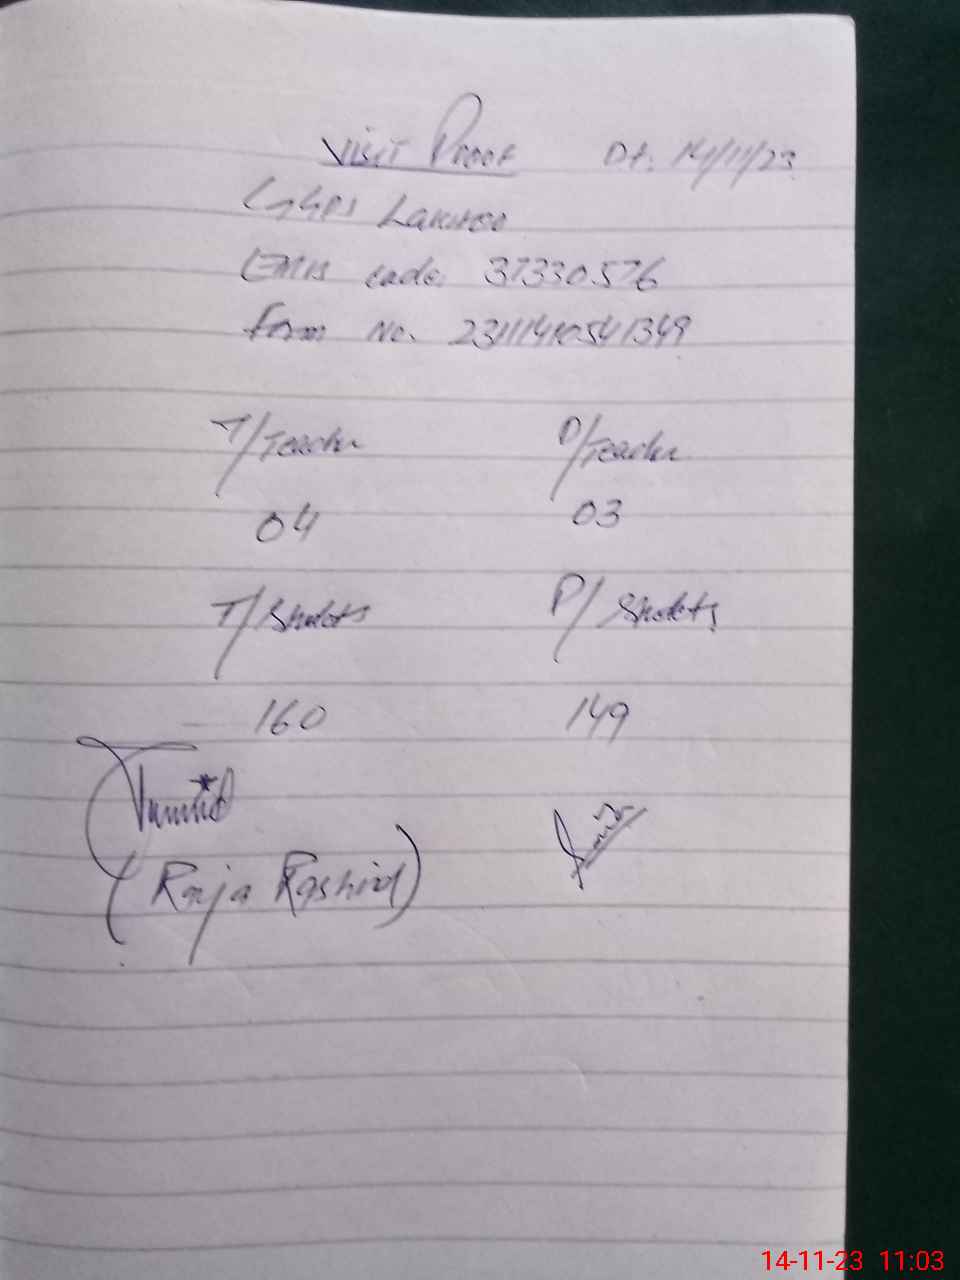 Visit Proof Dt: 14/11/23
GGPS
EMIS code: 37330576
Form No. 23111410541349
T/Teacher P/Teacher
04 03
T/Students P/Students
160 149
(Raja Rashid)
14-11-23 11:03